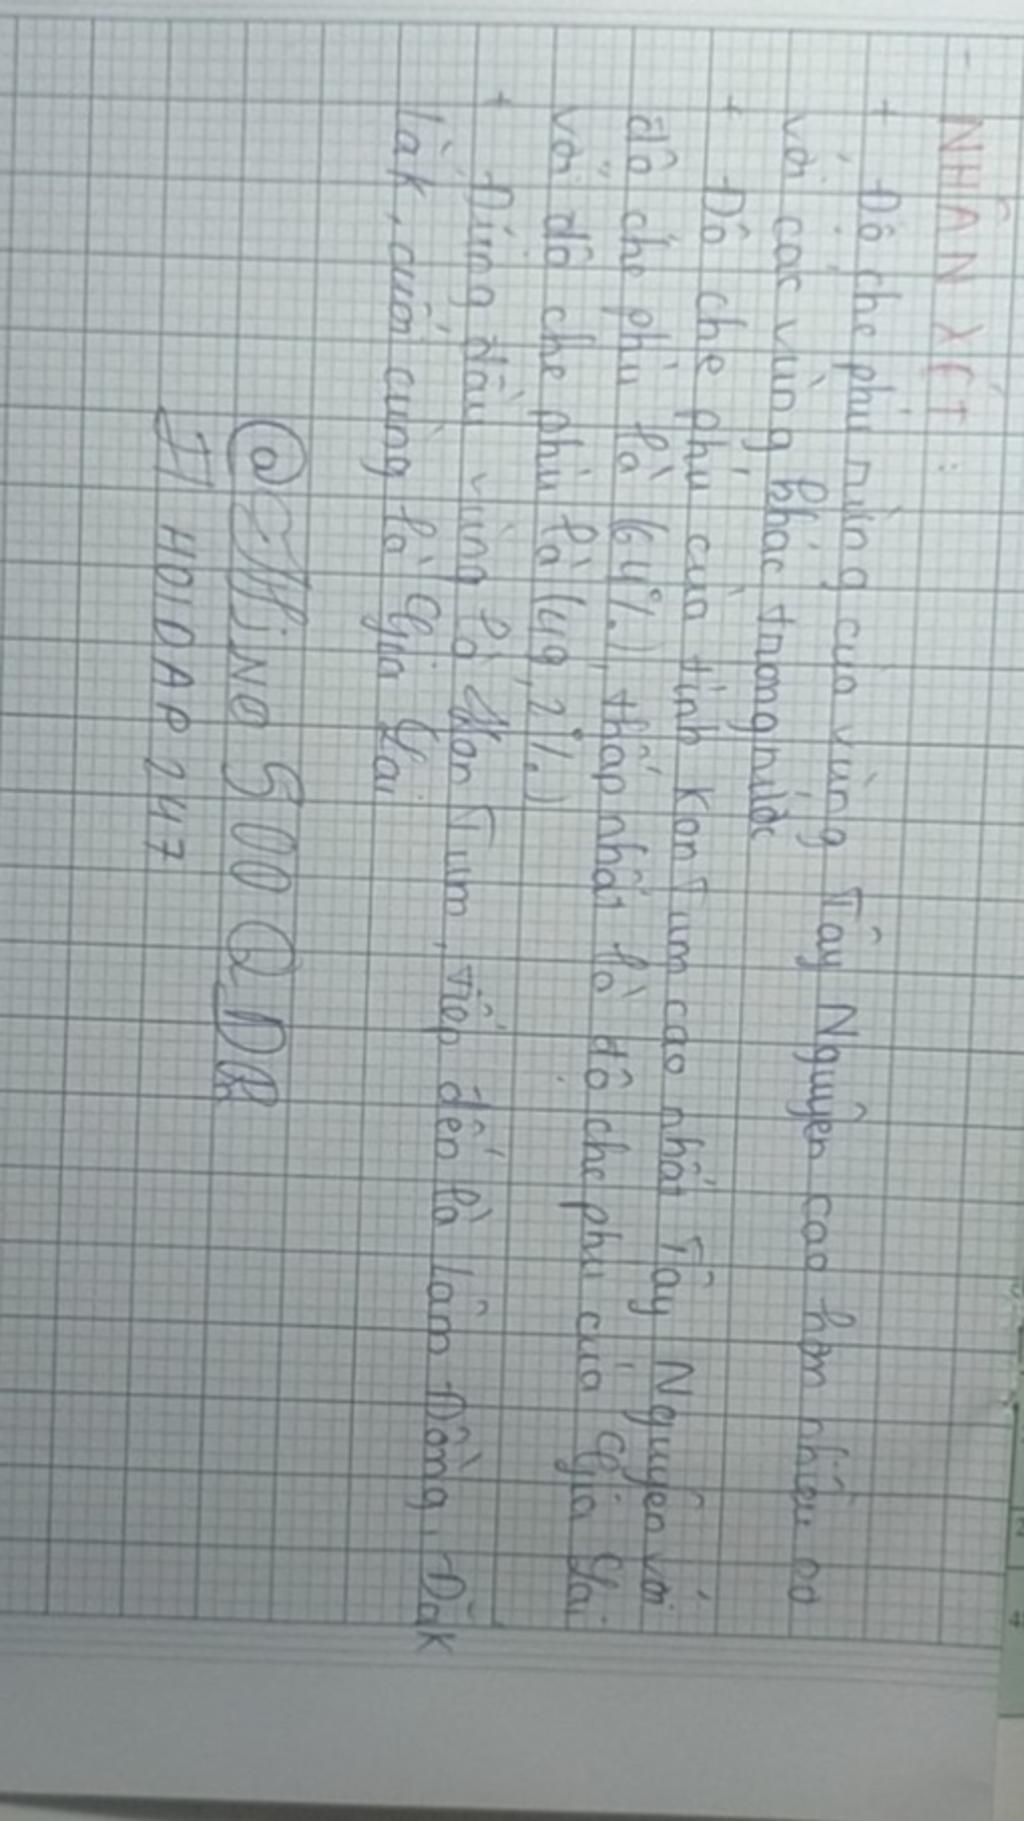 - NHẬN XÉT :
+ Độ che phủ rừng của vùng Tây Nguyên cao hơn nhiều so
với các vùng khác trong nước
+ Độ che phủ của tỉnh Kon Tum cao nhất Tây Nguyên với
độ che phủ là (64%), thấp nhất là độ che phủ của Gia Lai
với độ che phủ là (49,2%)
+ Đứng đầu vùng là Kon Tum, tiếp đến là Lâm Đồng, Đắk
Lắk, cuối cùng là Gia Lai
# HOIDAP247